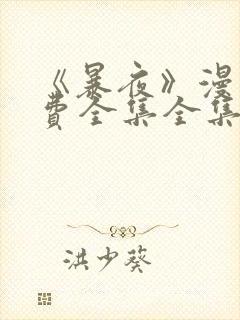 《暴夜》漫
费全集全集
洪少葵